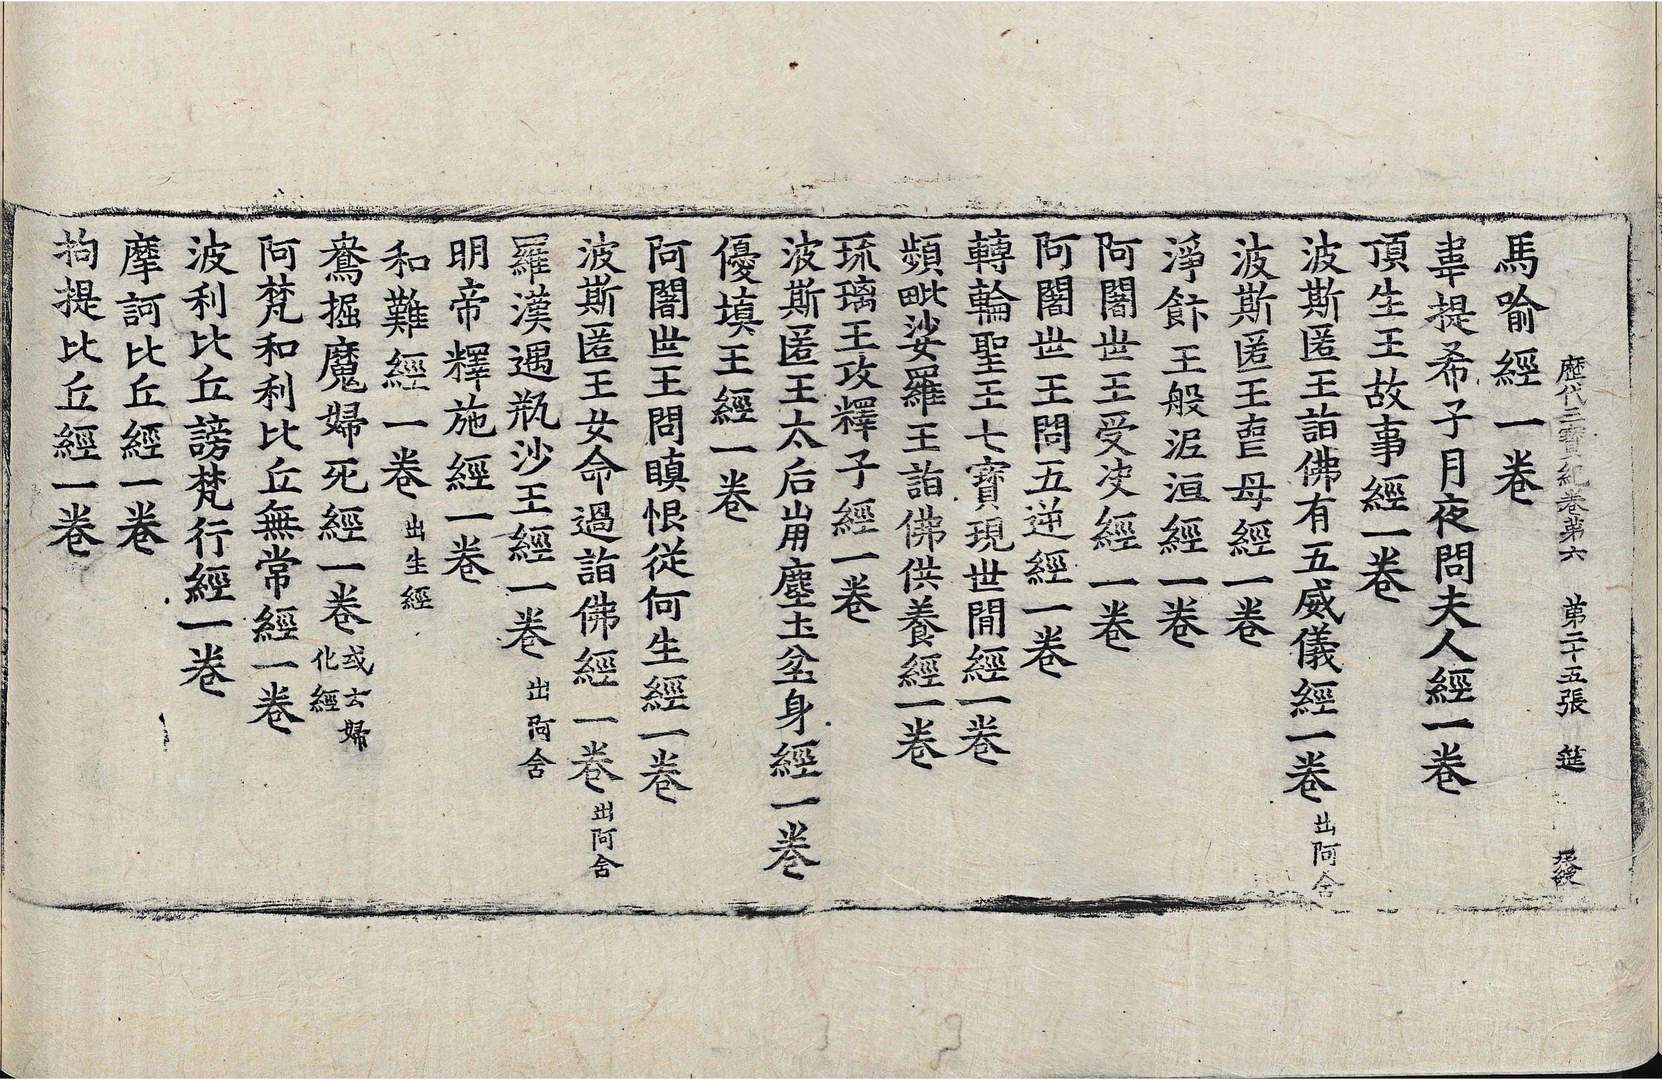 歷代三寶紀卷第六 第二十五張 筵
馬喻經一卷
韋提希子月夜問夫人經一卷
頂生王故事經一卷
波斯匿王詣佛有五威儀經一卷 出阿含
波斯匿王喪母經一卷
淨飯王般泥洹經一卷
阿闍世王受决經一卷
阿闍世王問五逆經一卷
轉輪聖王七寶現世閒經一卷
頻毗娑羅王詣佛供養經一卷
琉璃王攻釋子經一卷
波斯匿王太后崩塵土坌身經一卷
優填王經一卷
阿闍世王問瞋恨從何生經一卷
波斯匿王女命過詣佛經一卷 出阿含
羅漢遇瓶沙王經一卷 出阿含
明帝釋施經一卷
和難經一卷 出生經
鴦掘魔婦死經一卷 或云婦化經
阿梵和利比丘無常經一卷
波利比丘謗梵行經一卷
摩訶比丘經一卷
拘提比丘經一卷